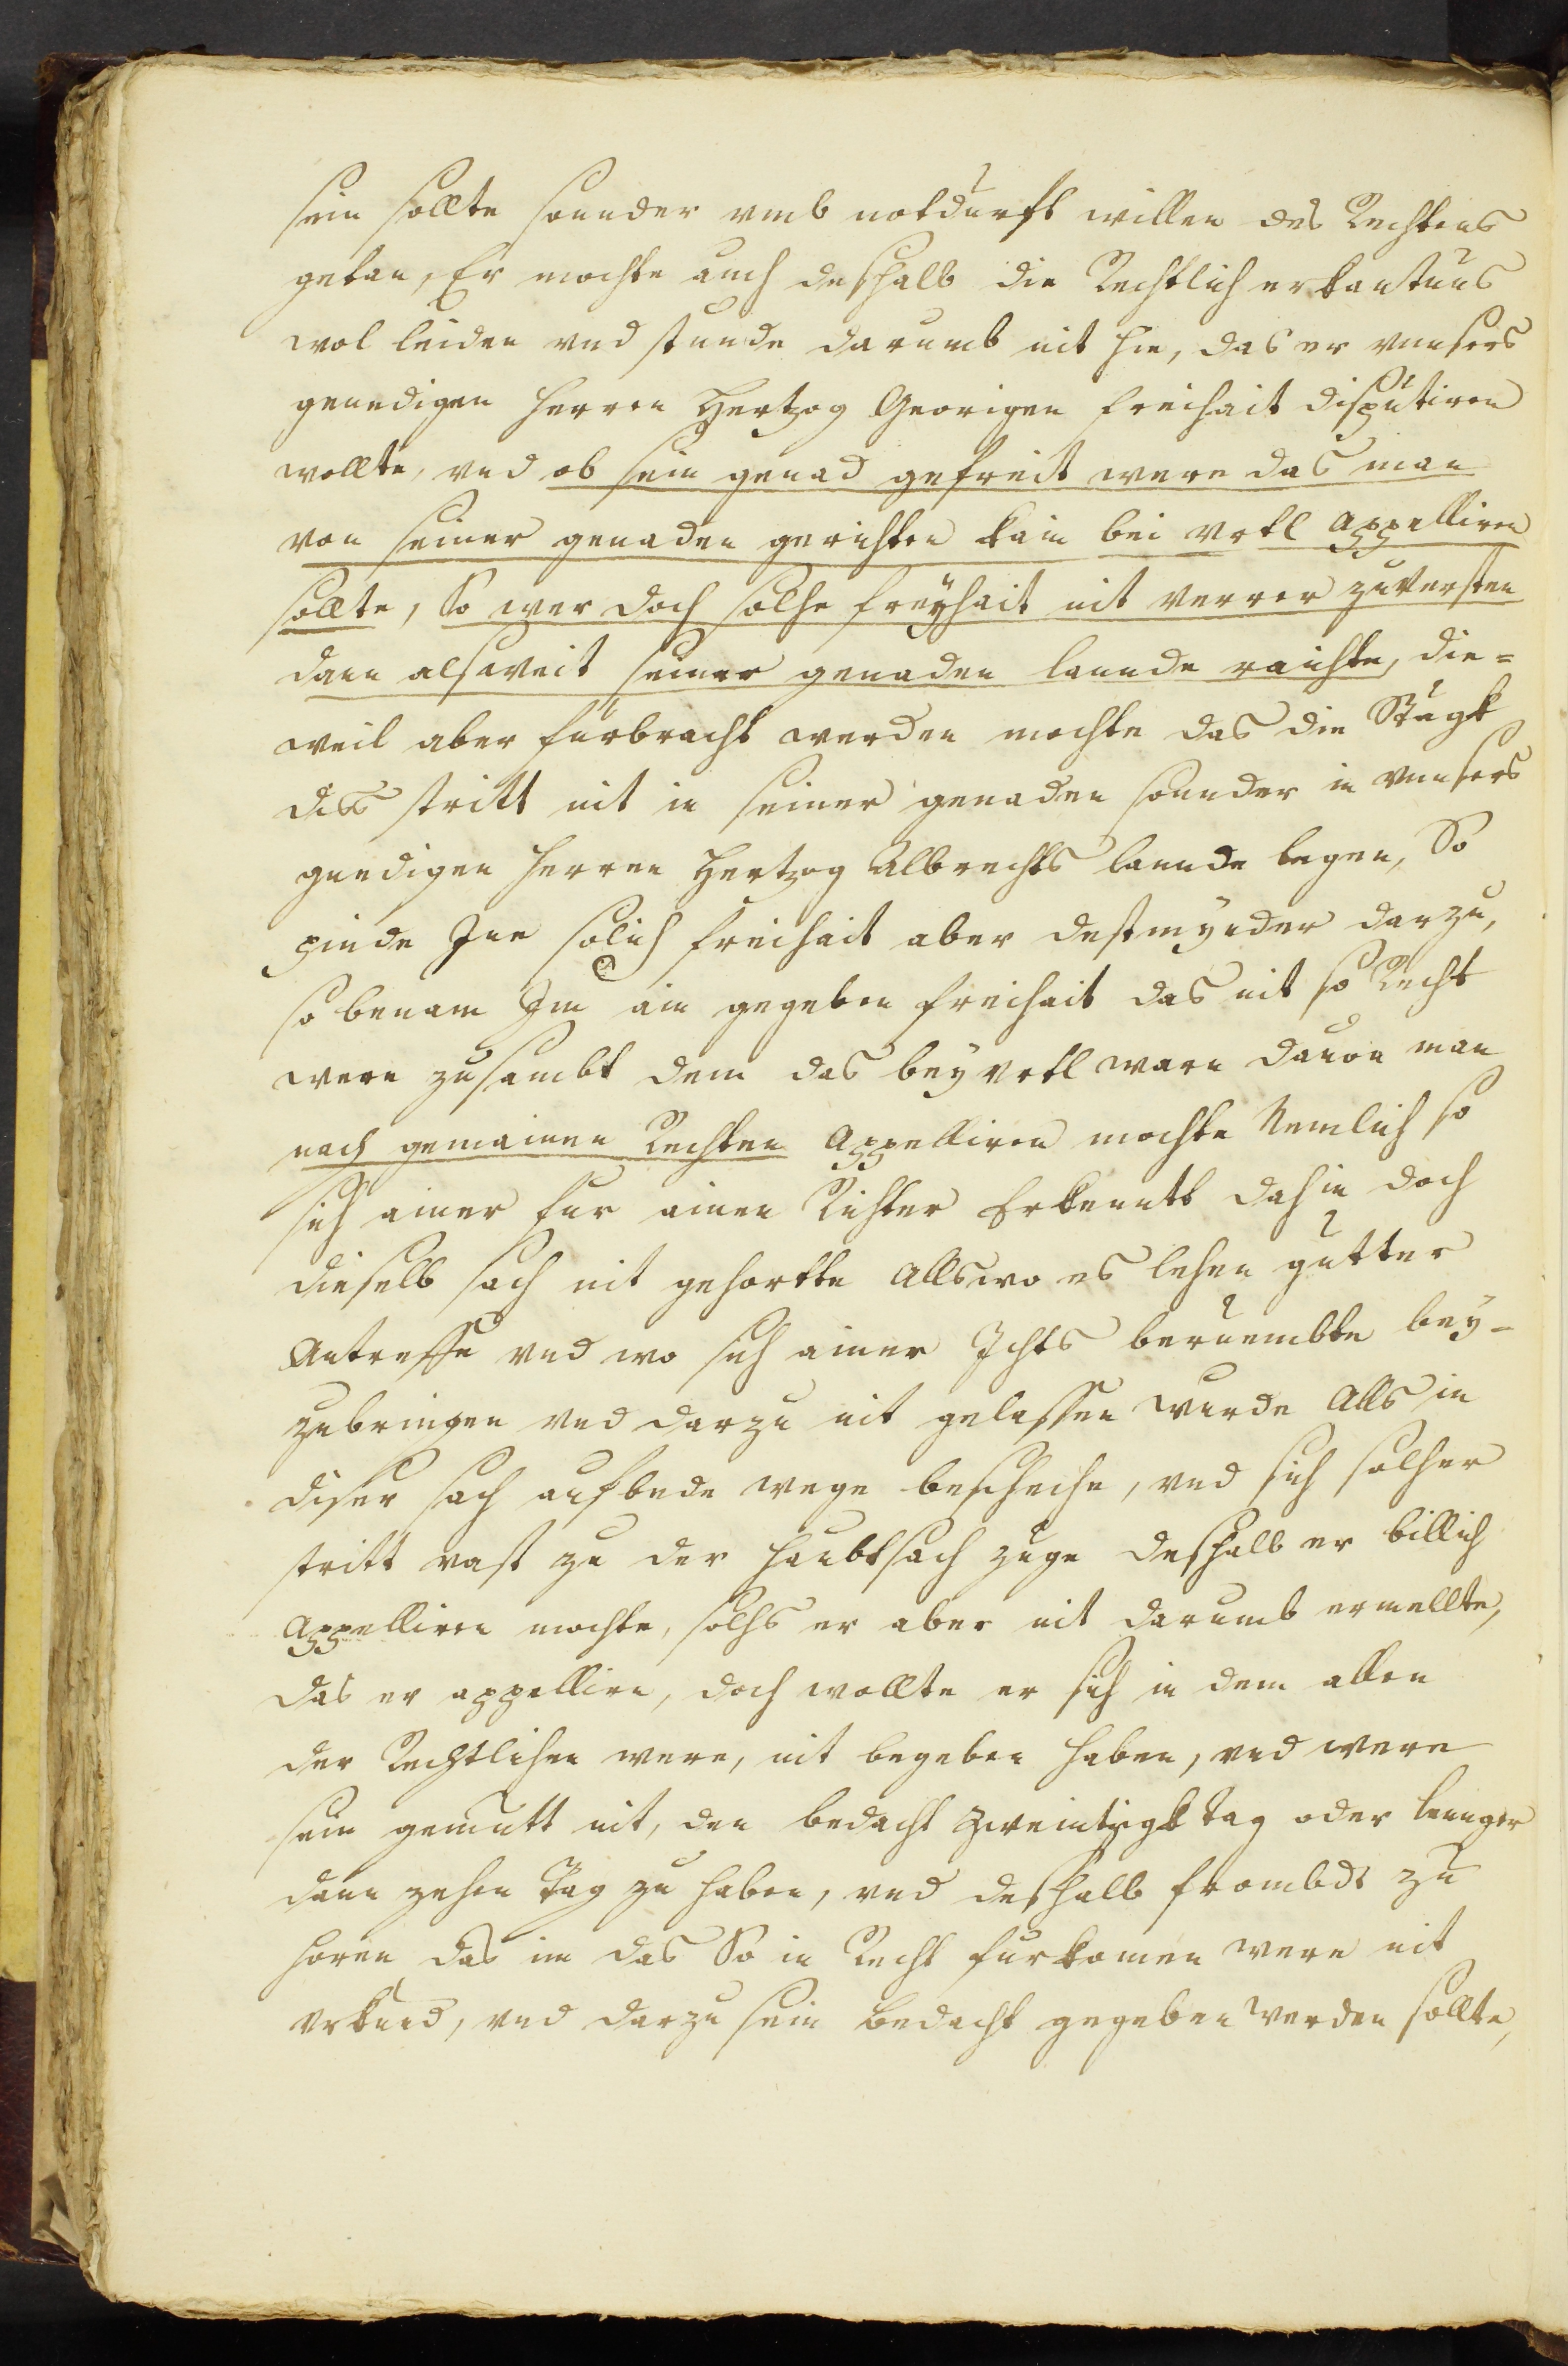 sein sollte sonnder vmb notdurft willen des Rechtens
getan, Er mochte auch deshalb die Rechtlich erkantnus
wol leiden vnd stunde darumb nit hie, das er vnnsers
genedigen herren Hertzog Georigen freihait disputiren
wollte, vnd ob sein genad gefreit were das man
von seiner genaden gerichten kain bei vrtl appelliren
sollte, So wer doch solhe freyhait nit verrer zuversten
dann alsweit seiner genaden lannde raichte, die=
weil aber furbracht werden mochte das die Stugk
des stritt nit in seiner genaden sonnder in vnnsers
gnedigen herren Hertzog Albrechts lannde legen, So
pinde Jne solich freihait aber destmynder darzu,
so benam Jm ain gegeben freihait das nit so Recht
were zusambt dem das beyvrtl ware dauon man
nach gemainen Rechten Appelliren mochte Nemlich so
sich ainer fur ainen Richter Erkennts dahin doch
dieselb sach nit gehortte Allswo es lehen gutter
Antreffe vnd wo sich ainer Ichts beruembte bey-
zubringen vnd darzu nit gelassen wurde Alls in
diser sach aufbede wege beschehe, vnd sich solher
stritt vast zu der haubtsach zuge deshalb er billich
Appelliren mochte, solhs er aber nit darumb ermellte,
das er appellire, doch wollte er sich in dem allen
der Rechtlichen were, nit begeben haben, vnd were
sein gemutt nit, den bedacht zweintzigk tag oder lennger
dann zehen Tag zu haben, vnd deshalb frombdt zu
horen das im das So in Recht furkomen were nit
erkund, vnd darzu sein bedacht gegeben werden sollte,